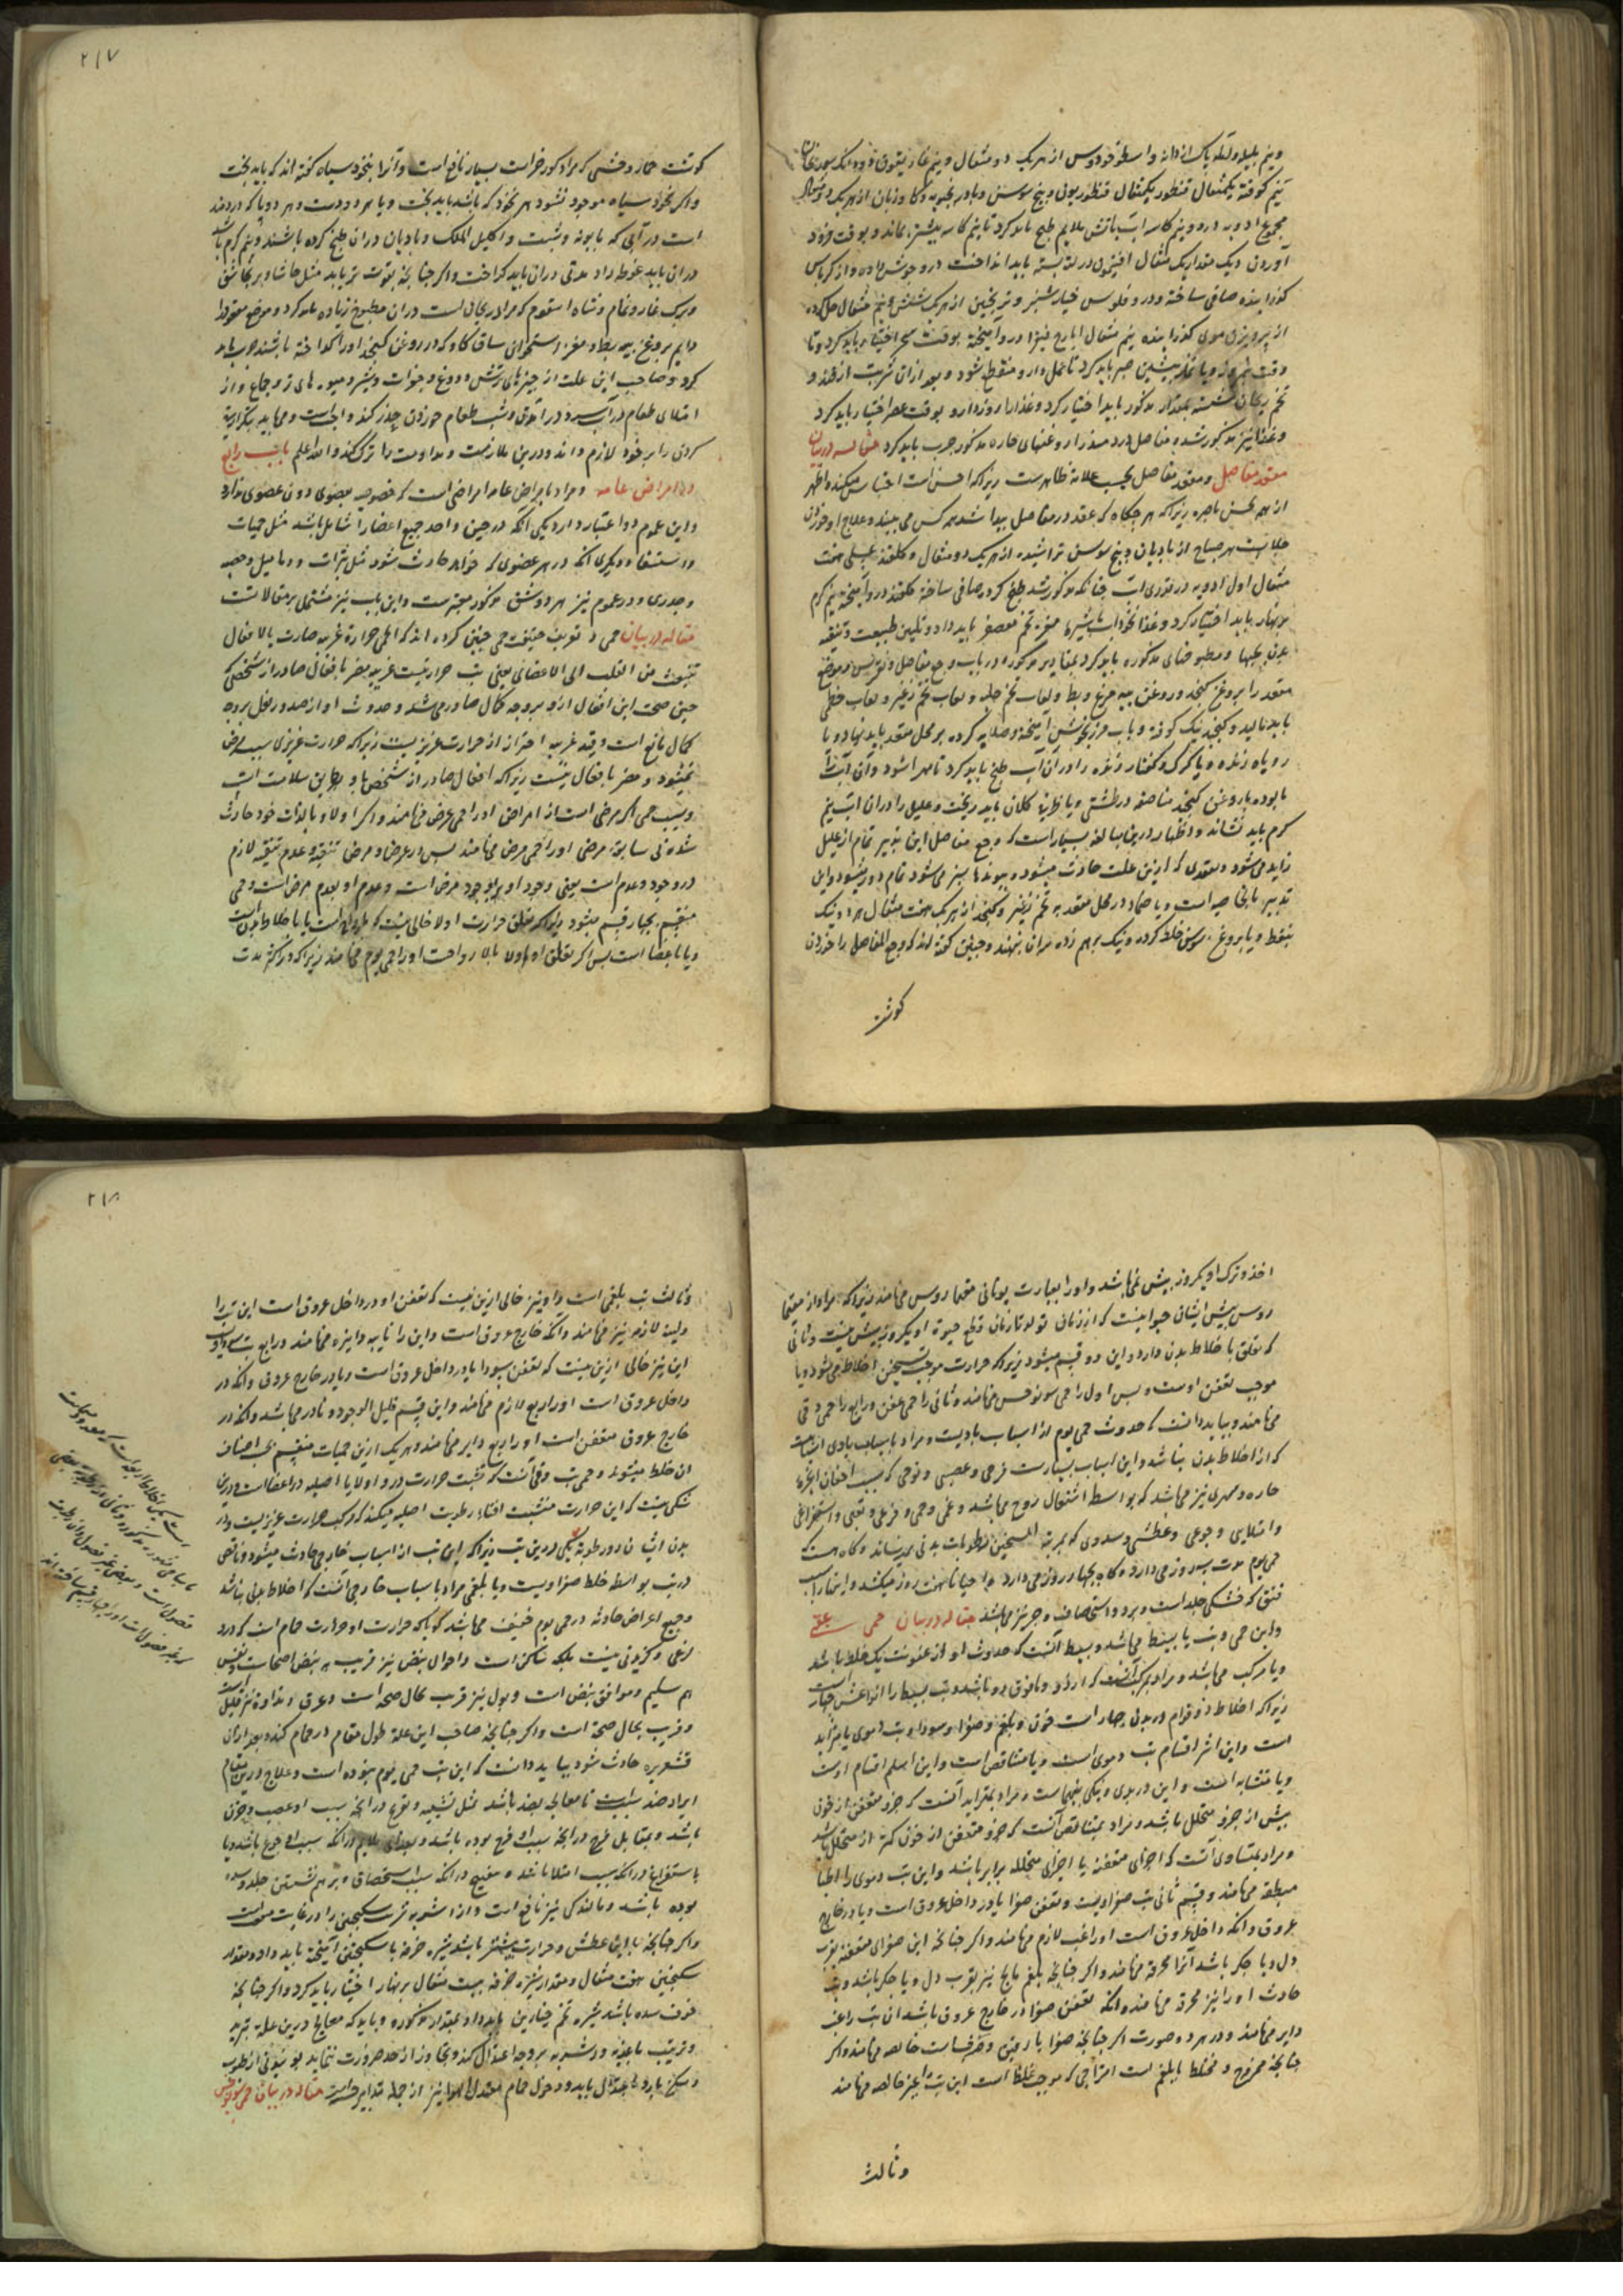 ۲۱۷
و نیم بلیله و آمله پاک از دانه و اسطوخودوس از هریک دو مثقال و نیم غاریقون
نیم کوفته یکمثقال قنطوریون و بیخ سوسن و بادرنجبویه و گاوزبان از هریک
مجموع ادویه در دو نیم کاسه آب باتش ملایم طبخ باید کرد تا نیم کاسه بیشتر نماند و بوقت فرود
آوردن دیک مقدار یک مثقال افتیمون در لته بسته باید انداخت و از کرباس
کذرانیده صافی ساخته و در و فلوس خیارشنبر و ترنجبین از هریک شش و نیم مثقال حل کرده
از پرویزن موی کذرانیده نیم مثقال ایارج فیقرا در و آمیخته بوقت سحر اختیار باید کرد و تا
وقت نیم روز و یا نماز پیشین صبر باید کرد تا عمل دارو منقطع شود و بعد ازان شربت از قند و
تخم ریحان بمقدار مذکور باید اختیار کرد و غذا را روز دارو بوقت عصر اختیار باید کرد
و غذا نیز مذکور شد و مفاصل درد مند را روغنهای حاره مذکور چرب باید کرد مقاله در بیان
معقد مفاصل و معقد مفاصل بحسب علامة ظاهرست زیراکه احسن است
از همه بحسن باصره زیراکه هرجکاه که عقد در مفاصل پیدا شد هر کس می بیند و علاج او خوردن
جلابست هر صباح از بادیان و بیخ سوسن تراشیده از هریک دو مثقال و کلقند عسلی هفت
مثقال اول ادویه در قدری آب چنانکه مذکور شد طبخ کرد و صافی ساخته کلقند در و آمیخته نیم کرم
برنهار باید اختیار کرد و غذا نخوداب با شیره مغز تخم معصفر باید داد و تلیین طبیعت و تنقیه
بدن بحبها و مطبوخهای مذکوره باید کرد بمقادیر مذکوره در باب وجع مفاصل و نقرس و موضع
معقد را بروغن کنجد و روغن پیه مرغ و بط و لعاب تخم حلبه و لعاب تخم زغیر و لعاب خطمی
باید مالید و کنجد نیک کوفته و باب مرزنجوش آمیخته و صلایه کرده بر محل معقد باید نهاد و یا
روباه زنده و یا کرک و کفتار زنده را در آن آب طبخ باید کرد تا مهرا شود و آن آب را
با روغن کنجد مناصفه در طشتی و یا ظرفی کلان باید ریخت و علیل را دران آب نیم
کرم باید نشاند و اظهار درین مبالغه بسیار است که وجع مفاصل این تدبیر تمام از علیل
زایل می شود و معقدی که ازین علت حادث میشود و پیوندها سبز می شود تمام دور میشود و این
تدبیر بالخاصیه است و یا ضماد در محل معقد به تخم زغیر و کنجد از هریک هفت مثقال
بنفط و یا بروغن سوسن خلط کرده و نیک برهم زده بران بنهند و چنین کفته اند که وجع المفاصل را خوردن
کوشت
کوشت حمار وحشی که مراد کورخر است بسیار نافع است و آنرا بنخود سیاه کفته اند که باید پخت
و اکر نخود سیاه موجود نشود بهر نخود که باشد باید پخت و یا هر دو دست و هر دو پا که دردمند
است در آبی که بابونه و شبت و اکلیل الملک و بادیان دران طبخ کرده باشند و نیم کرم باشد
دران باید غوطه داد مدتی دران باید کذاشت و اکر چنانچه بقوت تر باید مثل حاشا و برنجاسف
و برک غار و نمام و شاه اسفرم که مراد ریحان است دران مطبوخ زیاده باید کرد و موضع معقود را
دایم بروغن پیه بط و مغز استخوان ساق کاو که در روغن کنجد او را کداخته باشند چرب باید
کرد و صاحب این علت از چیزهای ترش و دوغ و جغرات و پنیر و میوه های تر و جماع و از
امتلای طعام در آب سرد در آمدن و شب طعام خوردن حذر کند و
کردن را بر خود لازم داند و درین ملازمت و مداومت را ترک نکند والله اعلم باب رابع
در امراض عامه و مراد بامراض عامه امراضی است که خصوصیه بعضوی دون عضوی ندارد
و این عموم دو اعتبار دارد یکی آنکه در حین واحد جمیع اعضا را شامل باشد مثل حمیات
و استسقا و دیکری آنکه در هر عضوی که خواهد حادث شود مثل بثرات و دمامیل و حصبه
و جدری و در عموم نیز هر دو شق مذکور معتبرست و این باب نیز مشتمل بر مقالاتست
مقاله در بیان حمی و تعریف حقیقت حمی چنین کرده اند که الحمی حرارة غریبه ضارت بالافعال
تنبعث من القلب الی الاعضای یعنی تب حرارتیست غریبه مضر بافعال صادر از شخصی که
حین صحت این افعال ازو بر وجه کمال صادر می شد و حدوث او از صدور فعل بر وجه
کمال مانع است و قید غریبه احتراز از حرارت غریزیست زیراکه حرارت غریزی سبب مرض
نمیشود و مضر بافعال نیست زیراکه افعال صادر از شخص باو و باین سلامت است
و سبب حمی اکر مرضی است از امراض او را حمی عرض می نامند و اکر اولا و بالذات خود حادث
شده بی سابقه مرضی او را حمی مرض می نامند پس در عرض و مرض تنقیه و عدم تنقیه لازم
در وجود و عدم است یعنی وجود او بوجود مرض است و عدم او بعدم مرض است و حمی
منقسم بچهار قسم میشود زیراکه تعلق حرارت اولا خالی نیست که بارواح است یا باخلاط بدن است
و یا باعضا است پس اکر تعلق او اولا بالا رواحست او را حمی یوم می نامند زیراکه در اکثر مدت
۲۱۸
اخذ و ترک او یکروز بیش نمیباشد و او را بعبارت یونانی می نامند زیراکه مراد از
روس پیش ایشان حیوانیست که از زمان تولد تا زمان قطع حیوة او یکروز بیش نیست و ثانی
که تعلق باخلاط بدن دارد و این دو قسم میشود زیراکه حرارت موجب تسخین اخلاط می شود و یا
موجب تعفن اوست و پس اول را حمی سونوخس می نامند و ثانی را حمی عفن و رابع را حمی دقی
می نامند و بباید دانست که حدوث حمی یوم از اسباب بادیست و مراد باسباب بادی اسبابیست
که از اخلاط بدن نباشد و این اسباب بسیارست فرحی و غضبی و نومی که بسبب احتقان ابخره
حاره و سهری نیز می باشد که بواسط اشتعال روح می باشد و غمی و همی و فزعی و تعبی و استفراغی
و امتلایی و جوعی و عطشی و سددی که بمرتبه تسخین برطوبات بدنی نمیرساند و کاه هست که
حمی یوم مدت سه روز می دارد و کاه بچهار روز می دارد و احیانا هفت روز میکشد و اینها را سبب
تشنق که خشکی جلد است و برد و استحصاف و حر نیز می باشد مقاله در بیان حمی عفنی
و این حمی و تب یا بسیط می باشد و بسیط آنست که حدوث او از عفونت یک خلط باشد
و یا مرکب می باشد و مراد بمرکب آنست که از دو و مافوق دو باشد و تب بسیط را انواعش چهار است
زیراکه اخلاط ذو قوام در بدن چهار است خون و بلغم و صفرا و سودا و تب دموی یا متزاید
است و این اشر اقسام تب دموی است و یا متناقص است و این اسلم اقسام اوست
و یا متشابه است و این در بدی و نیکی بینهماست و مراد بمتزاید آنست که جزو متعفن از خون
بیش از جزو متحلل باشد و مراد بمتناقص آنست که جزو متعفن از خون کمتر از متحلل باشد
و مراد بمتساوی آنست که اجزای متعفنه با اجزای متحلله برابر باشد و این تب دموی را اطبا
مطبقه می نامند و قسم ثانی تب صفراویست و تعفن صفرا یا در داخل عروق است و یا در خارج
عروق و آنکه داخل عروق است او را غب لازم می نامند و اکر چنانچه این صفرای متعفنه بقرب
دل و یا جکر باشد آنرا محرقه می نامند و اکر چنانچه بلغم مالح نیز بقرب دل و یا جکر باشد و تب
حادث او را نیز محرقه می نامند و آنکه تعفن صفرا در خارج عروق باشد ان تب را غب
دایر می نامند و در هر دو صورت اکر چنانچه صفرا یا رقیق و صرفست خالصه می نامند و اکر
چنانچه ممزوج و مختلط بابلغم است امتزاجی که موجب غلظ است این تب را غیر خالصه می نامند
و ثالث
و ثالث تب بلغمی است و او نیز خالی ازین نیست که تعفن او در داخل عروق است این تب را
ولیثه لازمه نیز می نامند و آنکه خارج عروق است و این را نایبه و دایره می نامند و رابع تب سوداوی
این نیز خالی ازین نیست که تعفن سودا یا در داخل عروق است و یا در خارج عروق و آنکه در
داخل عروق است او را ربع لازم می نامند و این قسم قلیل الوجود و نادر می باشد و آنکه در
خارج عروق متعفن است او را ربع دایر می نامند و هریک ازین حمیات منقسم باصناف
ان خلط میشوند و حمی تب دقی آنست که تشبث حرارت در و اولا باعضا اصلیه در اعضا است و درین
شکی نیست که این حرارت متشبث افناء رطوبت اصلیه میکند که مرکب حرارت غریزیست و در
بدن انسان دو رطوبة یکی درین تب زیراکه این تب از اسباب خارجی حادث میشود و نامی
در تب بواسطه خلط صفراویست و یا بلغمی مراد باسباب خارجی آنست که اخلاط بدنی نباشد
و جمیع اعراض حادثه در حمی یوم خفیف می باشد کویا که حرارت او حرارت حمام است که درد
لذعی و کزیدنی نیست بلکه ساکن است و احوال نبض نیز قریب به نبض اصحاست و نفس
هم سلیم و موافق نبض است و بول نیز قرب بحال صحة است و عرق و نداوه نیز قلیل است
و قریب بحال صحة است و اکر چنانچه صاحب این علة طول مقام در حمام کند و بعد ازان
قشعریره حادث شود بباید دانست که این تب حمی یوم نبوده است و علاج درین مقام
ایراد ضد سبب است تا معالجه بضد باشد مثل تسلیه و تفریح در آنچه سبب او غضب و حزن
باشد و بمقابل فرح در آنچه سبب او فرح بوده باشد و بغذای ملایم در آنکه سبب او جوع باشد و یا
باستفراغ در آنکه سبب امتلا باشد و تفتیح در آنکه سبب استحصاف و برهم نشستن جلد و سده
بوده باشد و مالیدکی نیز نافع است و از اشربه شربت سکنجبین را در غایت
و اکر چنانچه بااین عطش و حرارت بیشتر باشد شیره خرفه با سکنجبین آمیخته باید داد و مقدار
سکنجبین هفت مثقال و مقدار شیره خرفه بیست مثقال برنهار اختیار باید کرد و اکر چنانچه
خوف سده باشد شیره تخم خیارین باید داد بمقدار مذکوره و باید که معالج درین علة تبرید
و ترتیب باغذیه و اشربه بر وجه اعتدال کند و تجاوز از حد ضرورت ننماید
و مسکن بارد باعتدال باید و دخول حمام معتدل الهوا نیز از جمله تدابیر حسنه است مقاله در بیان حمی سونوخس